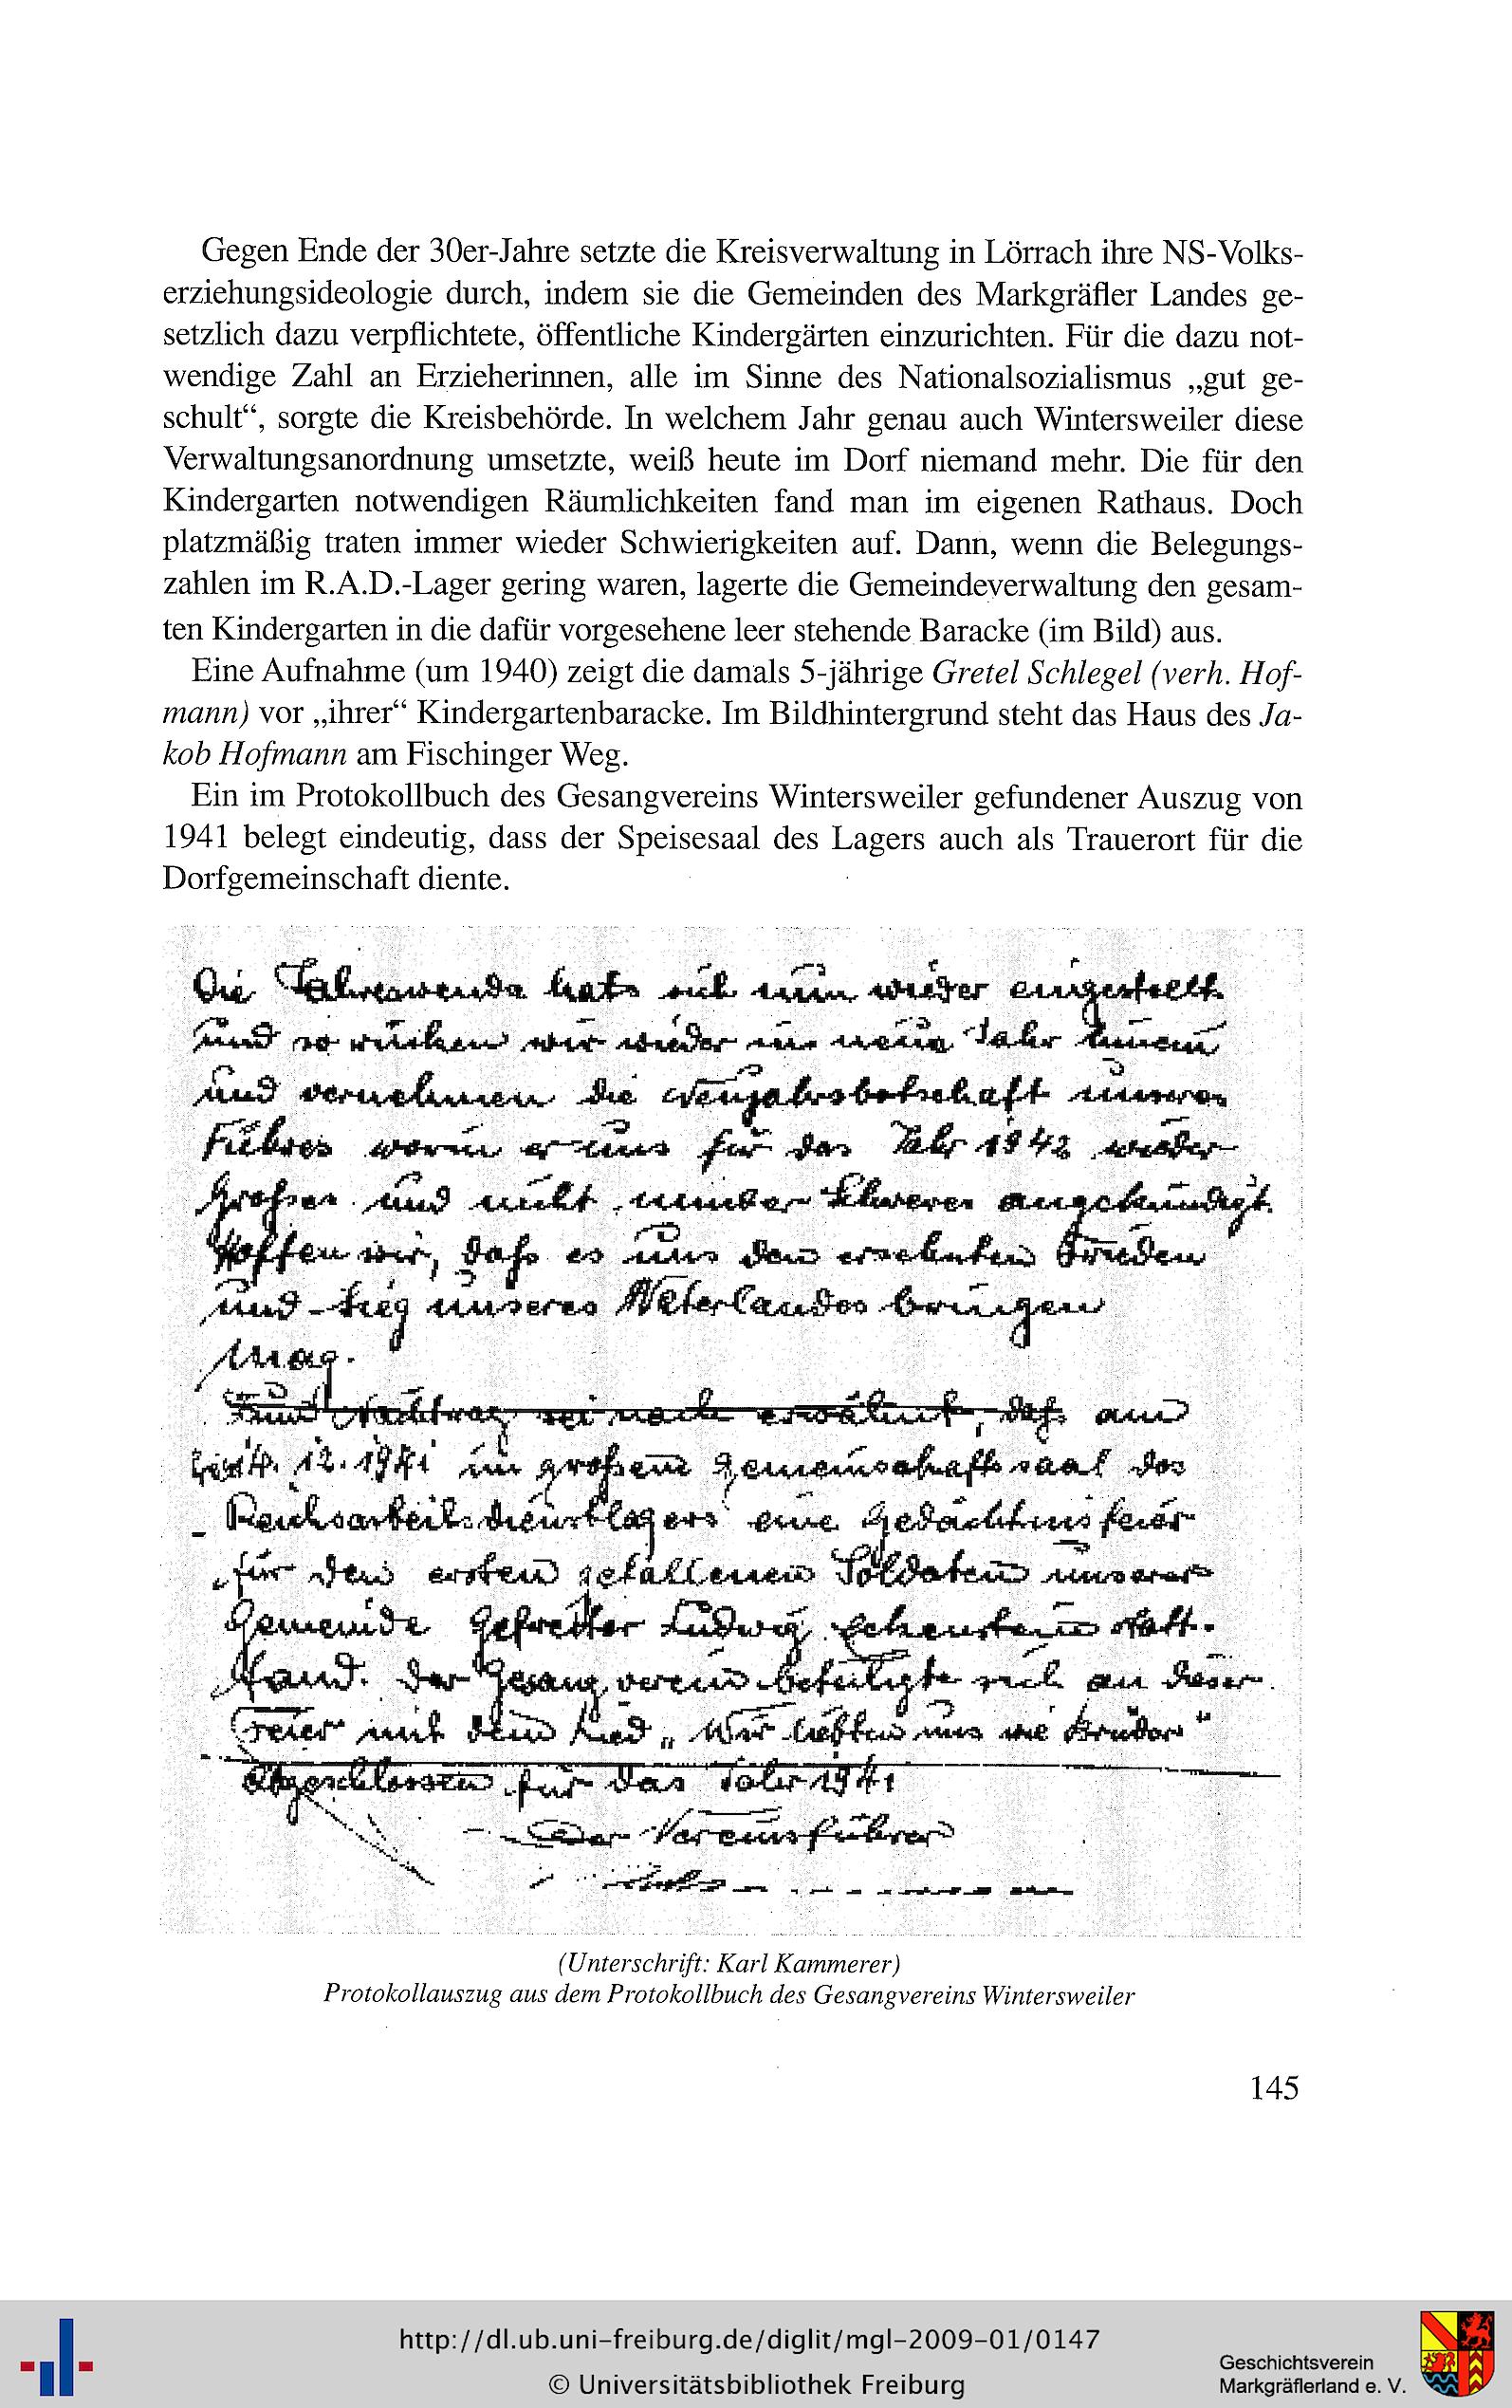 Gegen Ende der 30er-Jahre setzte die Kreisverwaltung in Lörrach ihre NS-Volks-
erziehungsideologie durch, indem sie die Gemeinden des Markgräfler Landes ge-
setzlich dazu verpflichtete, öffentliche Kindergärten einzurichten. Für die dazu not-
wendige Zahl an Erzieherinnen, alle im Sinne des Nationalsozialismus „gut ge-
schult“, sorgte die Kreisbehörde. In welchem Jahr genau auch Wintersweiler diese
Verwaltungsanordnung umsetzte, weiß heute im Dorf niemand mehr. Die für den
Kindergarten notwendigen Räumlichkeiten fand man im eigenen Rathaus. Doch
platzmäßig traten immer wieder Schwierigkeiten auf. Dann, wenn die Belegungs-
zahlen im R.A.D.-Lager gering waren, lagerte die Gemeindeverwaltung den gesam-
ten Kindergarten in die dafür vorgesehene leer stehende Baracke (im Bild) aus.
Eine Aufnahme (um 1940) zeigt die damals 5-jährige Gretel Schlegel (verh. Hof-
mann) vor „ihrer“ Kindergartenbaracke. Im Bildhintergrund steht das Haus des Ja-
kob Hofmann am Fischinger Weg.
Ein im Protokollbuch des Gesangvereins Wintersweiler gefundener Auszug von
1941 belegt eindeutig, dass der Speisesaal des Lagers auch als Trauerort für die
Dorfgemeinschaft diente.
Die Jahreswende hat sich nun wieder eingestellt
und so rücken wir wieder ins neue Jahr hinein
und vernehmen die Neujahrsbotschaft unseres
Führers worin er uns für das Jahr 1942 wieder
Großes und nicht minder Schweres angekündigt.
Hoffen wir, daß es uns den ersehnten Frieden
und Sieg unseres Vaterlandes bringen
mag.
Nachtrag sei noch erwähnt, daß am
12. 1941 im großen Gemeinschaftssaal des
Reichsarbeitsdienstlagers eine Gedächtnisfeier
für den ersten gefallenen Soldaten unserer
Gemeinde Gefreiter Ludwig statt-
fand. Der Gesangverein beteiligte sich an dieser
Feier mit dem Lied „Wir liebten uns wie Brüder“
Abgeschlossen für das Jahr 1941
Der Vereinsführer
(Unterschrift: Karl Kammerer)
Protokollauszug aus dem Protokollbuch des Gesangvereins Wintersweiler
145
http://dl.ub.uni-freiburg.de/diglit/mgl-2009-01/0147
© Universitätsbibliothek Freiburg
Geschichtsverein
Markgräflerland e. V.